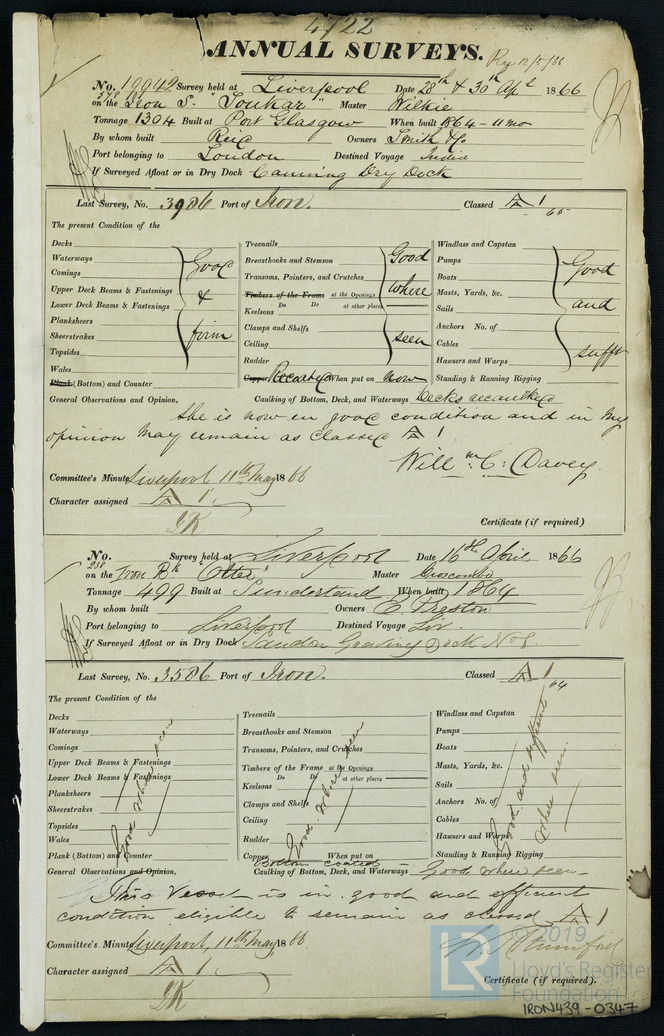 4722
ANNUAL SURVEYS. Rec 12/5/66
No. 19942 Survey held at Liverpool Date 28th & 30th Apl 1866
on the Iron S. "Toukar" Master Wilkie
Tonnage 1304 Built at Port Glasgow When built 1864-11mo
By whom built Reid Owners Smith & Co.
Port belonging to London Destined Voyage India
If Surveyed Afloat or in Dry Dock Canning Dry Dock
Last Survey, No. 3986 Port of Iron. Classed A 1 65
The present Condition of the
Decks
Waterways
Comings
Upper Deck Beams & Fastenings
Lower Deck Beams & Fastenings
Planksheers
Sheerstrakes
Topsides
Wales
Plank (Bottom) and Counter
Good
&
firm
Treenails
Breasthooks and Stemson
Transoms, Pointers, and Crutches
Timbers of the Frame at the Openings
Do Do at other places
Keelsons
Clamps and Shelfs
Ceiling
Rudder
Copper Recoated When put on now
Good
where
seen
Windlass and Capstan
Pumps
Boats
Masts, Yards, &c.
Sails
Anchors No. of
Cables
Hawsers and Warps
Standing & Running Rigging
Good
and
sufft
General Observations and Opinion, Caulking of Bottom, Deck, and Waterways Decks recaulked
She is now in good condition and in my
opinion may remain as classed A 1
Will m. C: Davey.
Committee's Minute Liverpool 11th May 1866
Character assigned A 1.
JK
Certificate (if required)
No. 238 Survey held at Liverpool Date 16th April 1866
on the Iron Bk "Otter" Master Luscombe
Tonnage 499 Built at Sunderland When built 1864
By whom built Owners E. Preston
Port belonging to Liverpool Destined Voyage Liv.
If Surveyed Afloat or in Dry Dock Sandon Graving Dock No 6.
Last Survey, No. 3586 Port of Iron. Classed A 1 64
The present Condition of the
Decks
Waterways
Comings
Upper Deck Beams & Fastenings
Lower Deck Beams & Fastenings
Planksheers
Sheerstrakes
Topsides
Wales
Plank (Bottom) and Counter
Good where seen
Treenails
Breasthooks and Stemson
Transoms, Pointers, and Crutches
Timbers of the Frame at the Openings
Do Do at other places
Keelsons
Clamps and Shelfs
Ceiling
Rudder
Copper Bottom coated When put on
Good where seen
Windlass and Capstan
Pumps
Boats
Masts, Yards, &c.
Sails
Anchors No. of
Cables
Hawsers and Warps
Standing & Running Rigging
Good and efficient
where seen.
General Observations and Opinion, Caulking of Bottom, Deck, and Waterways Good where seen
This Vessel is in good and efficient
condition eligible to remain as classed A 1
Committee's Minute Liverpool, 11th May, 1866.
Character assigned A 1
JK
Certificate (if required).
LR © 2019
Lloyd's Register
Foundation
IRON439-0347